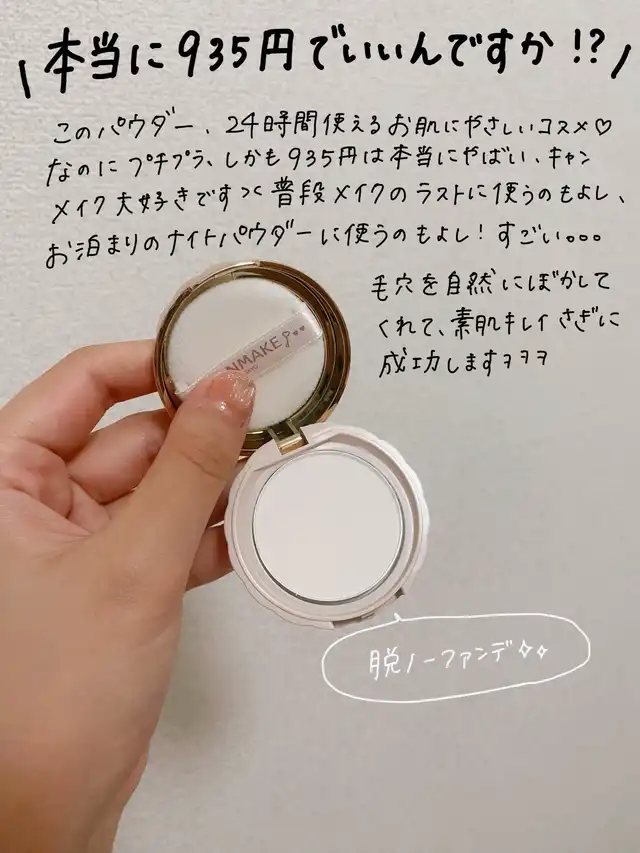 \ 本当に935円でいいんですか!? /
このパウダー、24時間使えるお肌にやさしいコスメ♡
なのにプチプラ、しかも935円は本当にやばい、キャン
メイク大好きですつく 普段メイクのラストに使うのもよし、
お泊まりのナイトパウダーに使うのもよし!すごい。。。
毛穴を自然にぼかして
くれて、素肌キレイさぎに
成功しますヲヲヲ
NMAKE
脱ノーファンデ✧✧